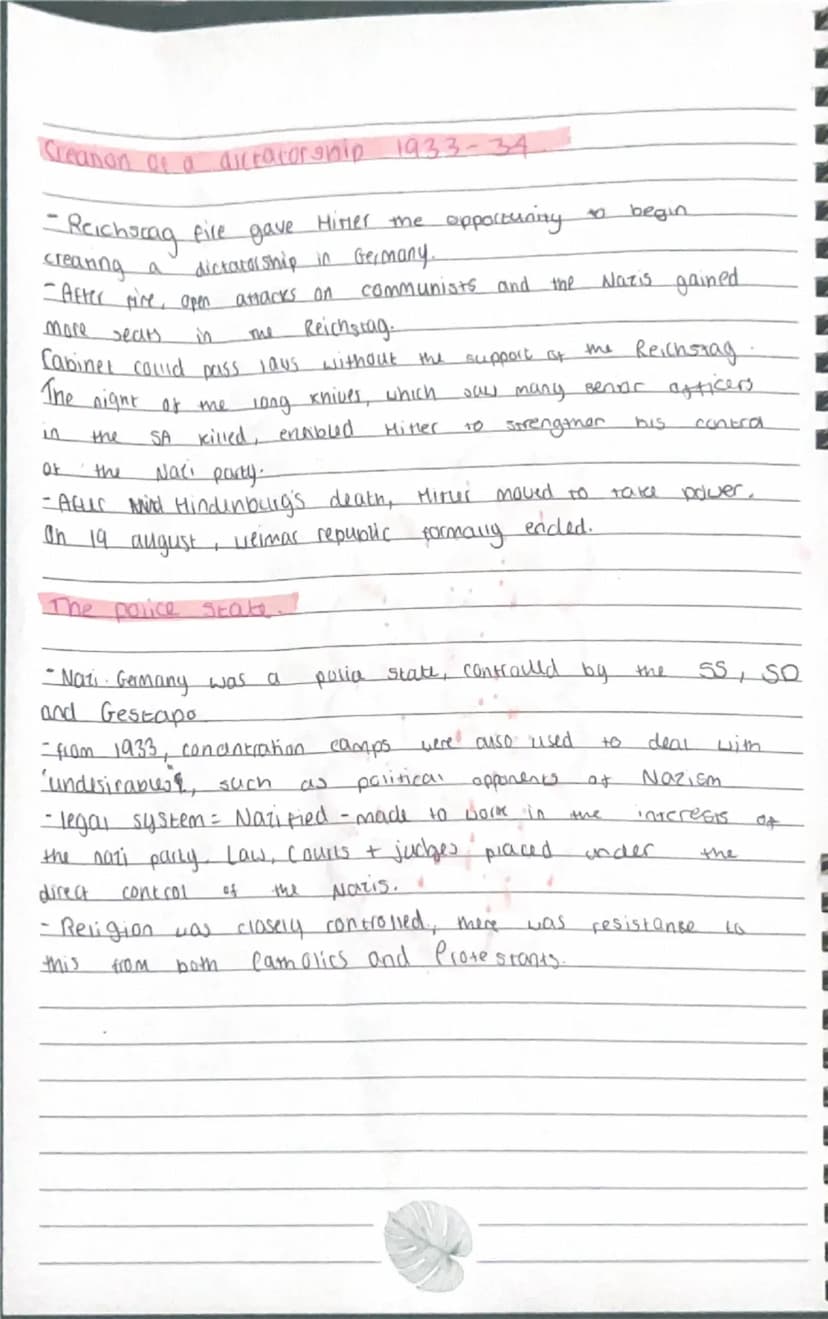 Creation of a dictatorship 1933-34
- Reichstag fire gave Hitler the opportunity to begin
creating a dictatorship in Germany.
- After fire, open attacks on communists and the Nazis gained
more seats in the Reichstag.
Cabinet could pass laws without the support of the Reichstag.
The night of the long knives, which saw many senior officers
in the SA killed, enabled Hitler to strengthen his control
of the Nazi party.
- After Hindenburg's death, Hitler moved to take power.
On 19 august, weimar republic formally ended.
The police state.
- Nazi Germany was a police state, controlled by the SS, SD
and Gestapo
- from 1933, concentration camps were also used to deal with
'undesirables', such as political opponents of Nazism
- legal system = Nazified - made to work in the interests of
the nazi party. Law, Courts + judges placed under the
direct control of the Nazis.
- Religion was closely controlled, there was resistance to
this from both Catholics and Protestants.